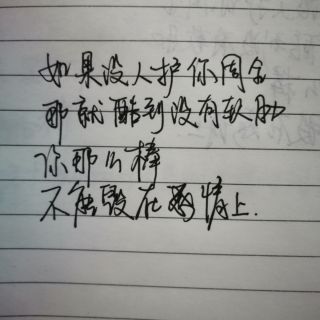 如果没人护你周全
那就酷到没有软肋
你那么棒
不能毁在感情上.